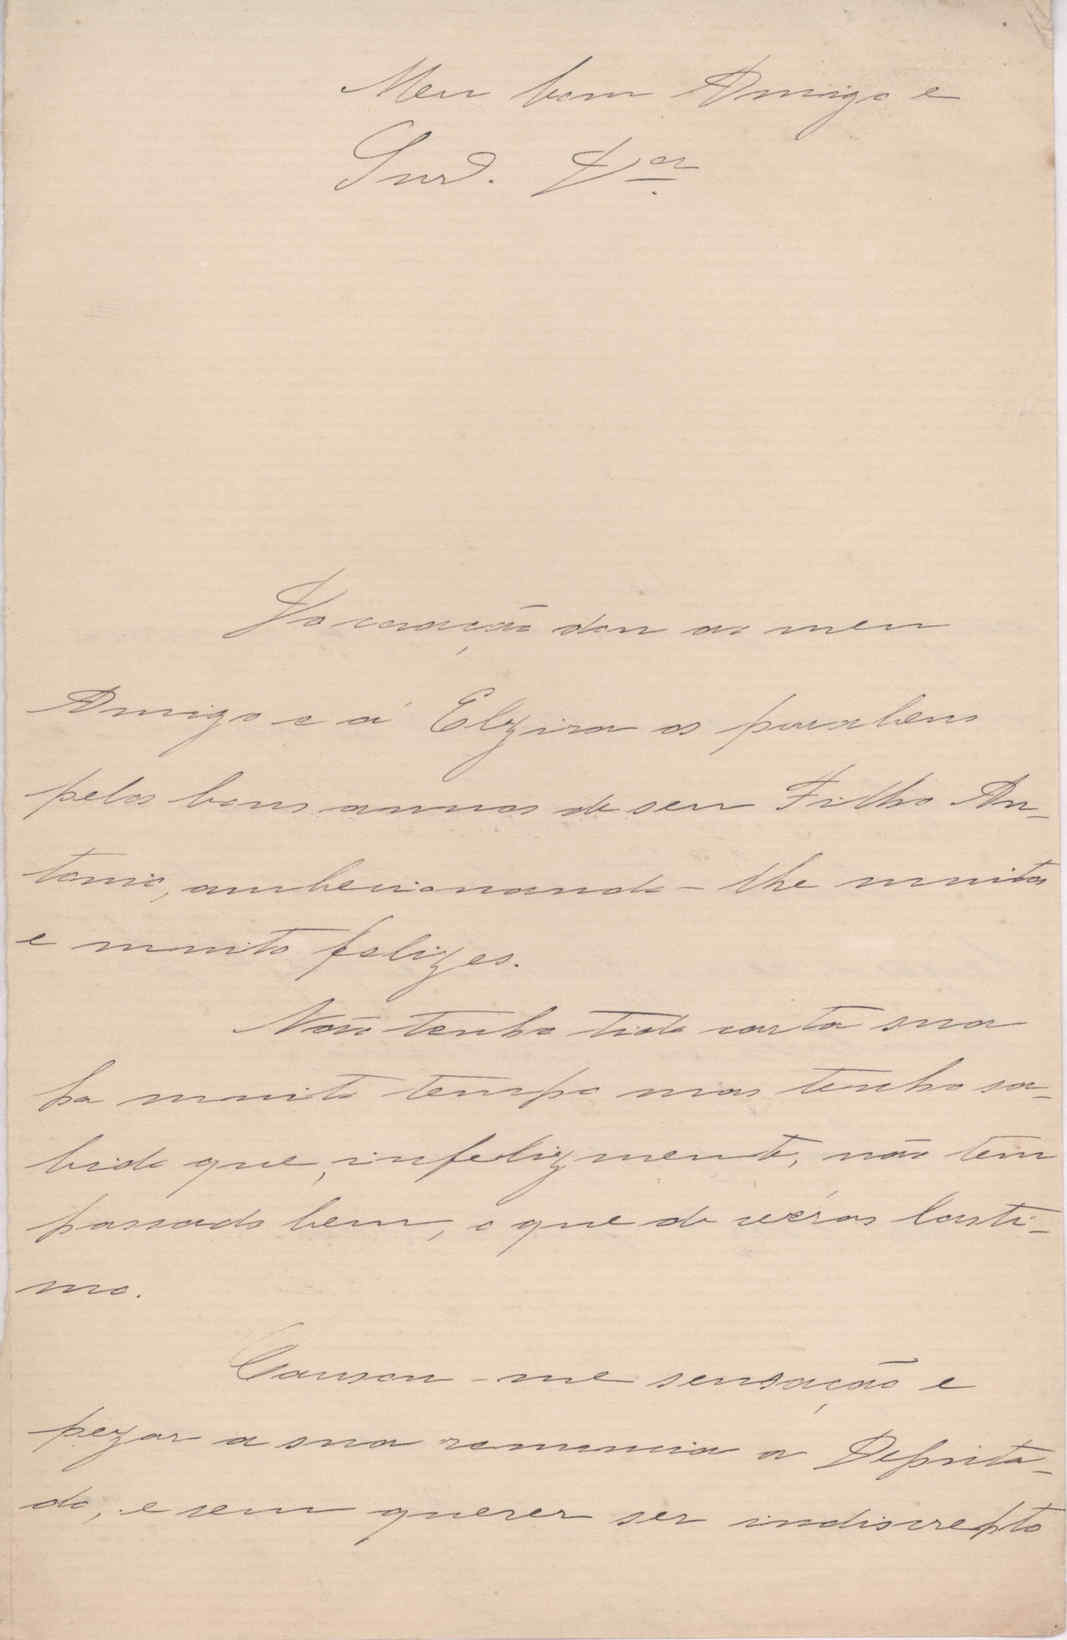 Meu bom Amigo e
Snr. Dor.
Do coração dou ao meu
Amigo e á Elzira os parabens
pelos bons annos de seu Filho An-
tonio, ambecionando-lhe muitos
e muito felizes.
Não tenho tido carta sua
ha muito tempo mas tenho sa-
bido que, infelizmente, não tem
passado bem, o que de véras lasti-
mo.
Causou-me sensação e
pezar a sua renuncia a Deputa-
do, e sem querer ser indiscrepto